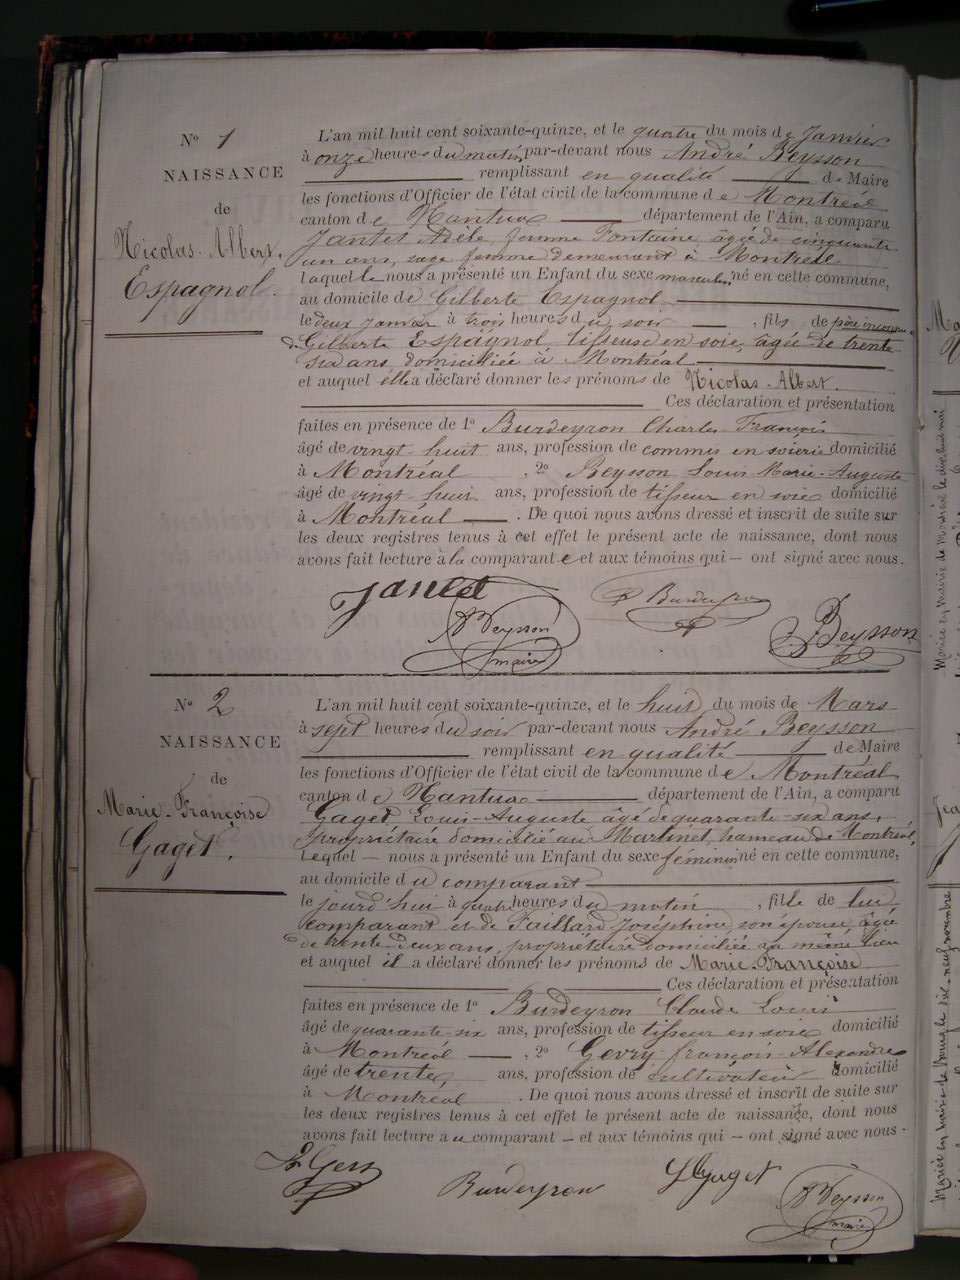 N° 1
NAISSANCE
de
Nicolas-Albert,
Espagnol.
L'an mil huit cent soixante-quinze, et le quatre du mois de Janvier
à onze heures du matin par-devant nous André Beysson
remplissant en qualité de Maire
les fonctions d'Officier de l'état civil de la commune de Montréal
canton de Nantua département de l'Ain, a comparu
Jantet Adèle, femme Fontaine, âgée de cinquante
un ans, sage femme demeurant à Montréal
laquelle nous a présenté un Enfant du sexe masculin né en cette commune,
au domicile de Gilberte Espagnol
le deux janvier à trois heures du soir, fils de père inconnu
& de Gilberte Espagnol, tisseuse en soie, âgée de trente
six ans domiciliée à Montréal
et auquel elle a déclaré donner les prénoms de Nicolas-Albert.
Ces déclaration et présentation
faites en présence de 1° Burdeyron Charles François
âgé de vingt-huit ans, profession de commis en soierie domicilié
à Montréal, 2° Beysson Louis Marie-Auguste
âgé de vingt-huit ans, profession de tisseur en soie domicilié
à Montréal. De quoi nous avons dressé et inscrit de suite sur
les deux registres tenus à cet effet le présent acte de naissance, dont nous
avons fait lecture à la comparante et aux témoins qui — ont signé avec nous.
Jantet
Beysson
maire
Burdeyron
Beysson
N° 2
NAISSANCE
de
Marie-Françoise
Gaget.
L'an mil huit cent soixante-quinze, et le huit du mois de Mars
à sept heures du soir par-devant nous André Beysson
remplissant en qualité de Maire
les fonctions d'Officier de l'état civil de la commune de Montréal
canton de Nantua département de l'Ain, a comparu
Gaget Louis-Auguste âgé de quarante-six ans,
propriétaire domicilié au Martinet, hameau de Montréal,
Lequel — nous a présenté un Enfant du sexe féminin né en cette commune,
au domicile du comparant
le jourd'hui à quatre heures du matin, fille de lui
comparant et de Faillard Joséphine son épouse, âgée
de trente-deux ans, propriétaire domiciliée au même lieu
et auquel il a déclaré donner les prénoms de Marie-Françoise
Ces déclaration et présentation
faites en présence de 1° Burdeyron Claude Louis
âgé de quarante-six ans, profession de tisseur en soie domicilié
à Montréal, 2° Gevry françois-Alexandre
âgé de trente, ans, profession de cultivateur domicilié
à Montréal. De quoi nous avons dressé et inscrit de suite sur
les deux registres tenus à cet effet le présent acte de naissance, dont nous
avons fait lecture au comparant — et aux témoins qui — ont signé avec nous.
Burdeyron
Gaget
Beysson
maire